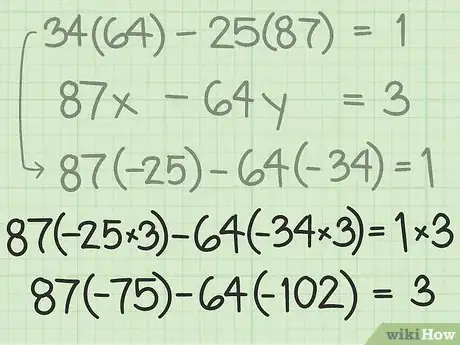 34(64) - 25(87) = 1
87x - 64y = 3
87(-25) - 64(-34) = 1
87(-25×3) - 64(-34×3) = 1×3
87(-75) - 64(-102) = 3
wikiHow